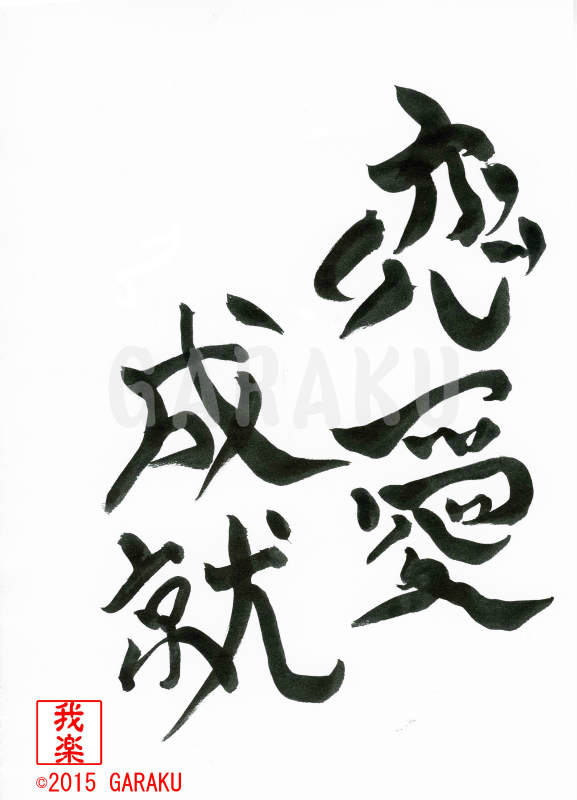 恋愛
成就
GARAKU
我楽
©2015 GARAKU